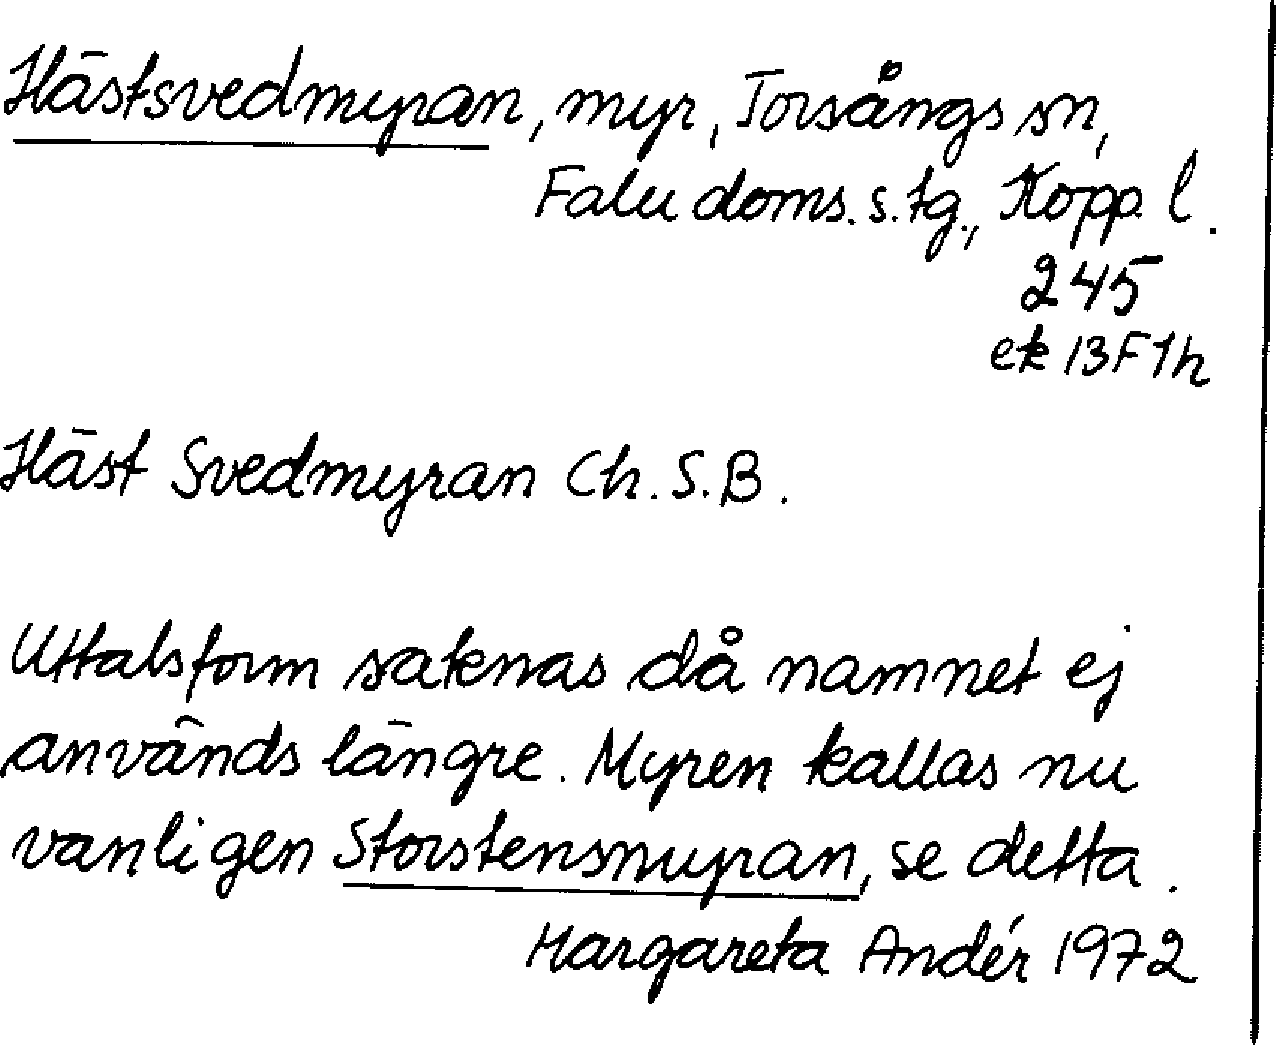 Hästsvedmyran, myr, Torsångs sn,
Falu doms. s. tg., Kopp. l.
245
ek 13F1h
Häst Svedmyran Ch. S. B.
Uttalsform saknas då namnet ej
används längre. Myren kallas nu
vanligen Storstensmyran, se detta.
Margareta Andér 1972